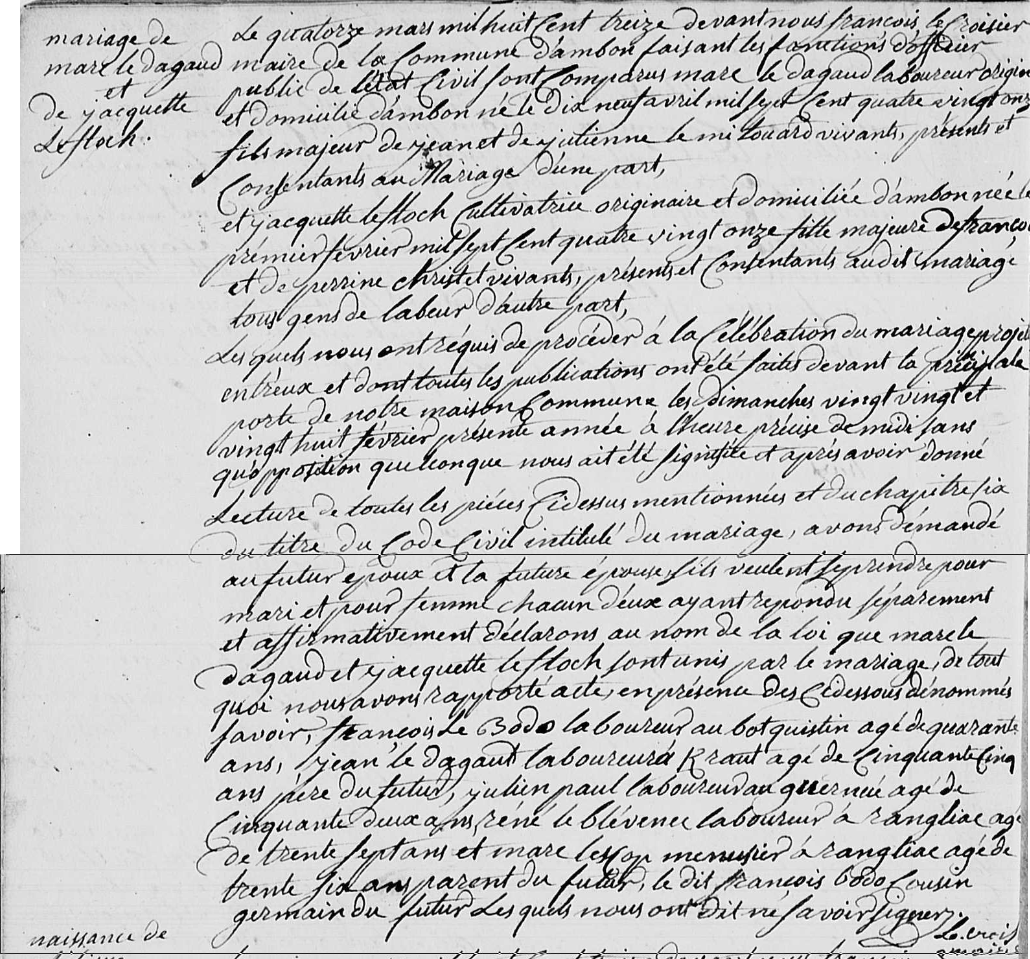 mariage de
marc le dagaud
et
de jacquette
Le floch.
Le quatorze mars mil huit Cent treize devant nous françois le Croisier
maire de la Commune d'ambon faisant les fonctions d'officier
public de l'état Civil sont Comparus marc le dagaud laboureur origin
et domicilié d'ambon né le dix neuf avril mil sept Cent quatre vingt onz
fils majeur de jean et de julienne le mi vivants, présents et
Consentants au Mariage d'une part,
et jacquette le floch Cultivatrice originaire et domiciliée d'ambon née le
prémier février mil sept Cent quatre vingt onze fille majeure de franço
et de perrine christet vivants, présents et Consentants audit mariage
tous gens de labeur d'autre part,
Les quels nous ont réquis de procéder à la Célébration du mariage projet
entr'eux et dont toutes les publications ont été faites devant la principale
porte de notre maison Commune les dimanches vingt vingt et
vingt huit février présente année à l'heure précise de midi sans
qu'opposition quelconque nous ait été signifiée et aprés avoir donné
Lecture de toutes les piéces Cidessus mentionnées et du chapitre six
du titre du Code Civil intitulé du mariage, avons démandé
au futur époux et la future épouse, s'ils veulent se prendre pour
mari et pour femme chacun d'eux ayant repondu séparement
et affirmativement déclarons au nom de la loi que marc le
dagaud et jacquette le floch sont unis par le mariage, de tout
quoi nous avons rapporté acte, en présence des Cidessous dénommés
savoir, françois Le Bodo laboureur au botquistin agé de quarante
ans, jean le dagaud laboureur à Kraut agé de Cinquante Cinq
ans pére du futur, julien paul laboureur au guernué agé de
Cinquante deux ans, réné le blévenec laboureur à rangliac agé
de trente sept ans et marc lescop menusier à rangliac agé de
trente six ans parent du futur, le dit françois bodo Cousin
germain du futur Les quels nous ont dit né savoir signer.
Le Crois
maire
naissance de